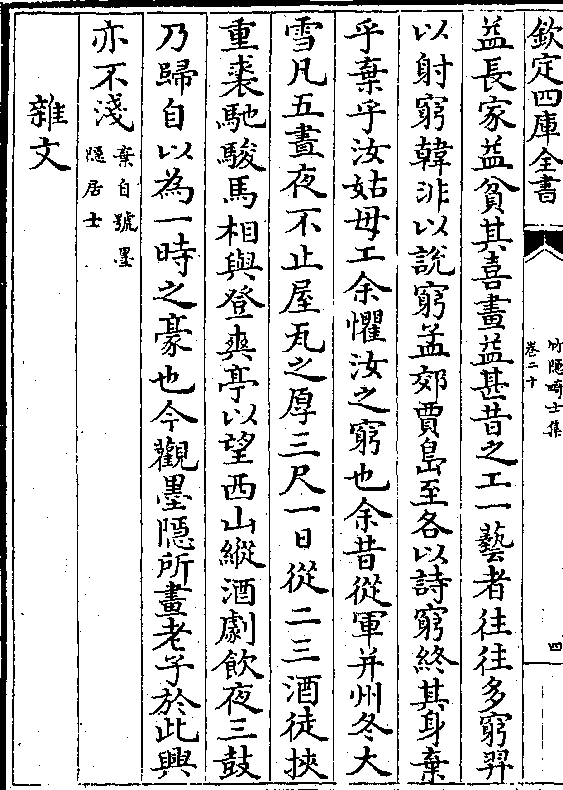 欽定四庫全書
竹隠畸士集
卷二十
四
益長家益貧其喜畫益甚昔之工一藝者往往多窮羿
以射窮韓非以説窮孟郊賈島至各以詩窮終其身棄
乎棄乎汝姑毋工余懼汝之窮也余昔從軍并州冬大
雪凡五晝夜不止屋瓦之厚三尺一日從二三酒徒挾
重裘馳駿馬相與登爽亭以望西山縱酒劇飲夜三鼓
乃歸自以為一時之豪也今觀墨隠所畫老子於此興
亦不淺
棄自號墨
隠居士
雜文